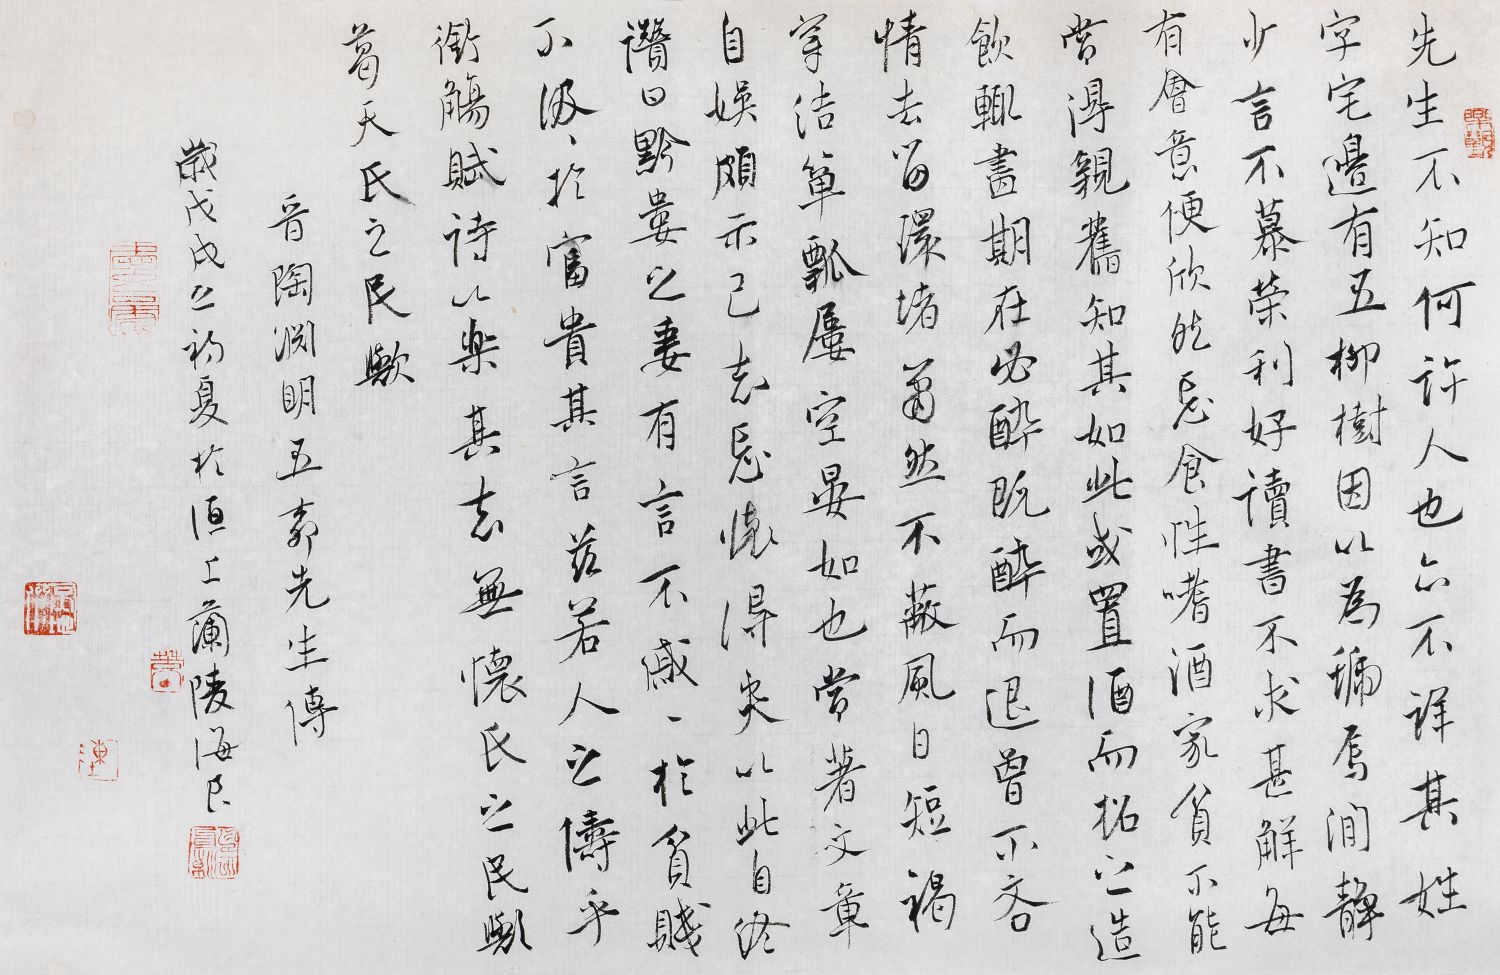 先生不知何許人也亦不詳其姓
字宅邊有五柳樹因以為號焉閒靜
少言不慕榮利好讀書不求甚解每
有會意便欣然忘食性嗜酒家貧不能
常得親舊知其如此或置酒而招之造
飲輒盡期在必醉既醉而退曾不吝
情去留環堵蕭然不蔽風日短褐
穿結簞瓢屢空晏如也常著文章
自娛頗示己志忘懷得失以此自終
讚曰黔婁之妻有言不慼〻於貧賤
不汲〻於富貴其言茲若人之儔乎
銜觴賦詩以樂其志無懷氏之民歟
葛天氏之民歟
晉陶淵明五柳先生傳
歲戊戌之初夏於滬上蘭陵海民